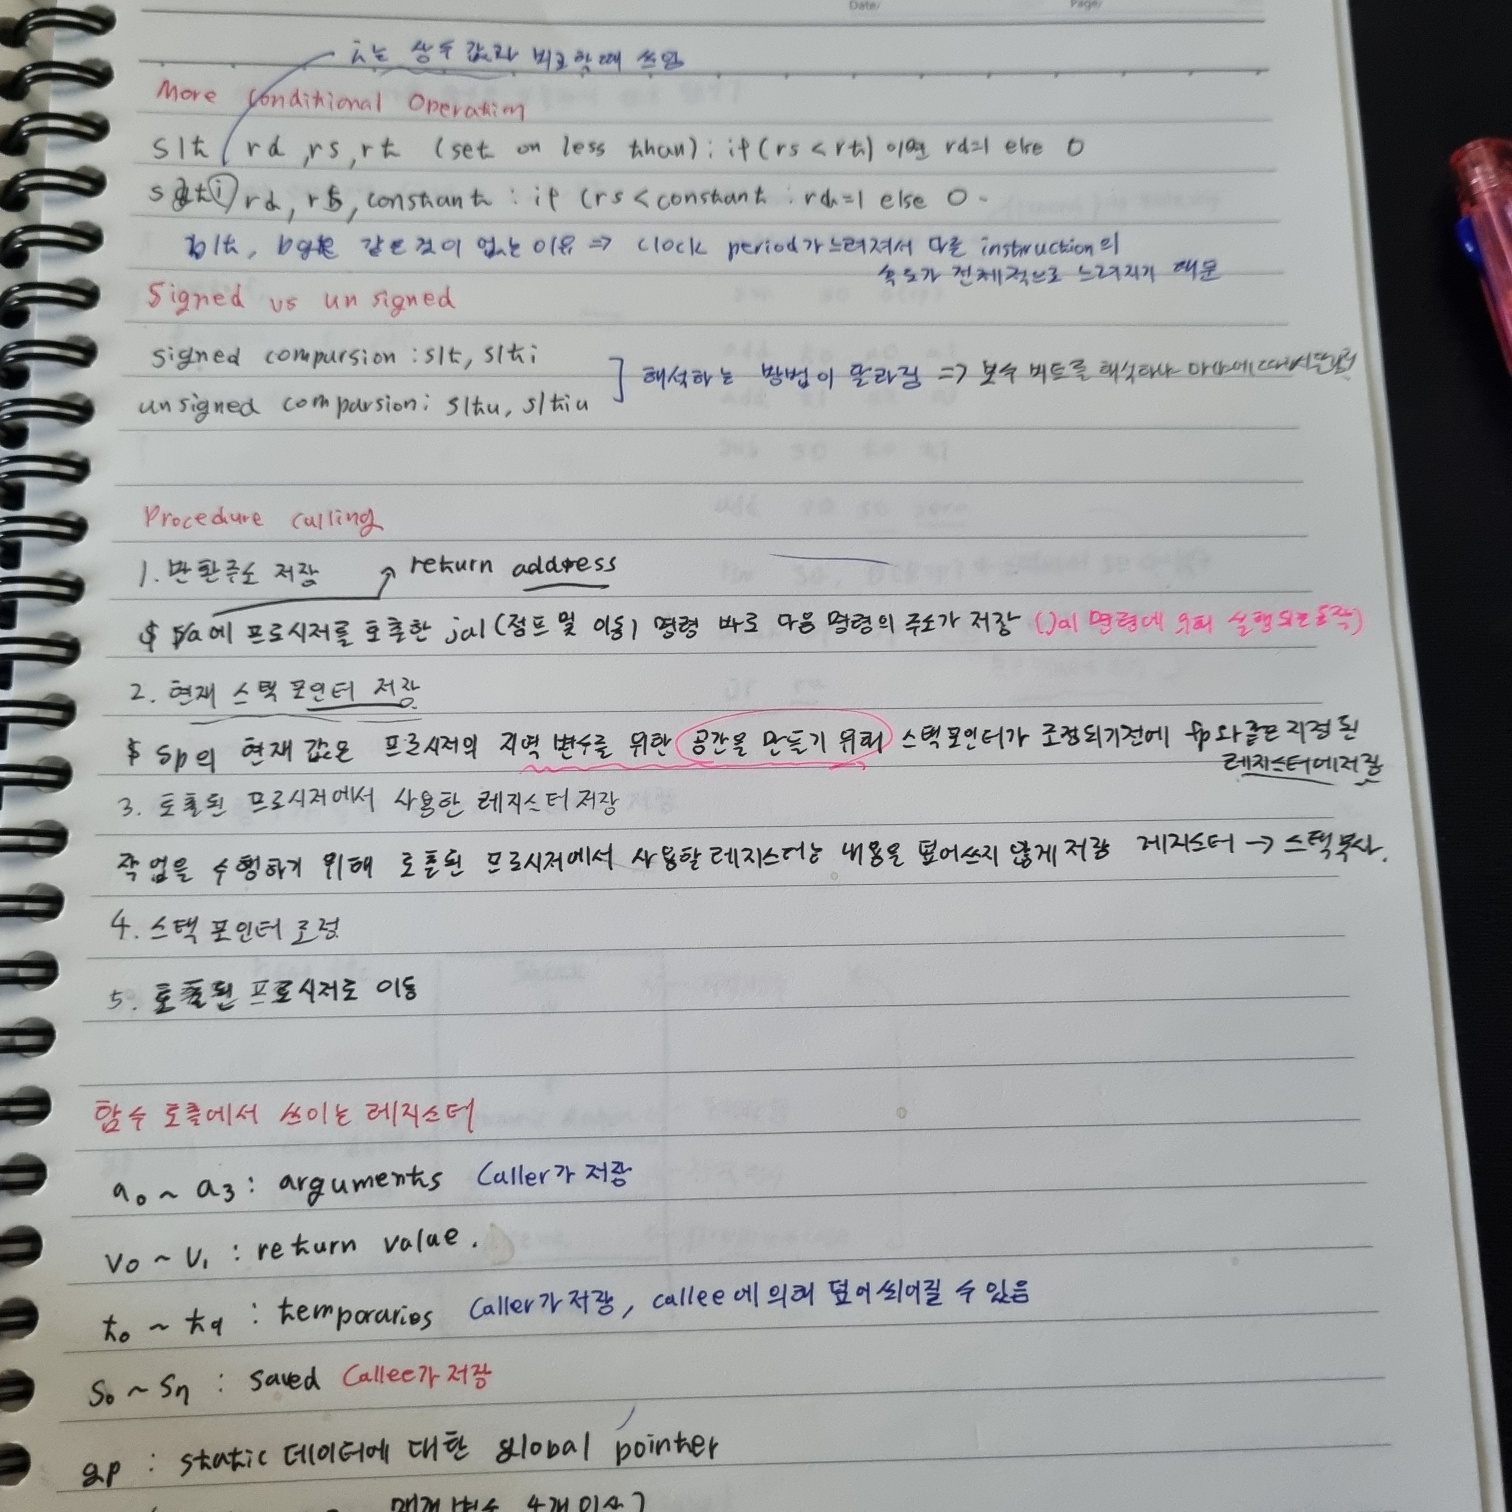 Date/ Page/
i는 상수 값과 비교할때 쓰임
More Conditional Operation
slt rd, rs, rt (set on less than) : if (rs < rt) 이면 rd=1 else 0
slti rd, rs, constant : if (rs < constant : rd=1 else 0.
blt, bge 같은 것이 없는 이유 => clock period가 느려져서 다른 instruction의
속도가 전체적으로 느려지기 때문
Signed vs unsigned
signed compursion : slt, slti
unsigned comparsion : sltu, sltiu
] 해석하는 방법이 달라짐 => 보수 비트를 해석하냐 마냐에 따라서
Procedure calling
1. 반환주소 저장 return address
$ra에 프로시저를 호출한 jal (점프 및 이동) 명령 바로 다음 명령의 주소가 저장 (jal 명령에 의해 실행되는 동작)
2. 현재 스택 포인터 저장
$sp의 현재 값은 프로시저의 지역 변수를 위한 공간을 만들기 위해 스택포인터가 조정되기전에 fp와 같은 지정된
레지스터에 저장
3. 호출된 프로시저에서 사용한 레지스터 저장
작업을 수행하기 위해 호출된 프로시저에서 사용할 레지스터는 내용을 덮어쓰지 않게 저장 레지스터 → 스택복사.
4. 스택 포인터 조정
5. 호출된 프로시저로 이동
함수 호출에서 쓰이는 레지스터
a0 ~ a3 : arguments Caller가 저장
v0 ~ v1 : return value.
t0 ~ t9 : temporaries Caller가 저장, callee에 의해 덮어 씌어질 수 있음
s0 ~ s7 : saved Callee가 저장
gp : static 데이터에 대한 global pointer
매개 변수 4개 이상?